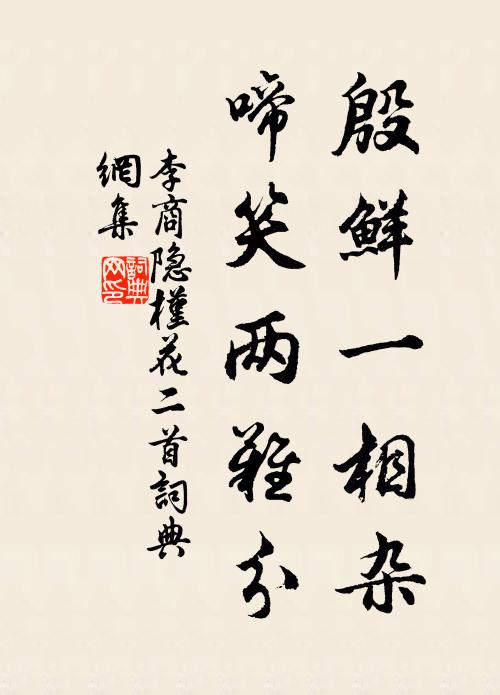 殷鮮一相杂
啼笑两難分
李商隐槿花二首詞典
網集
詞典
网印